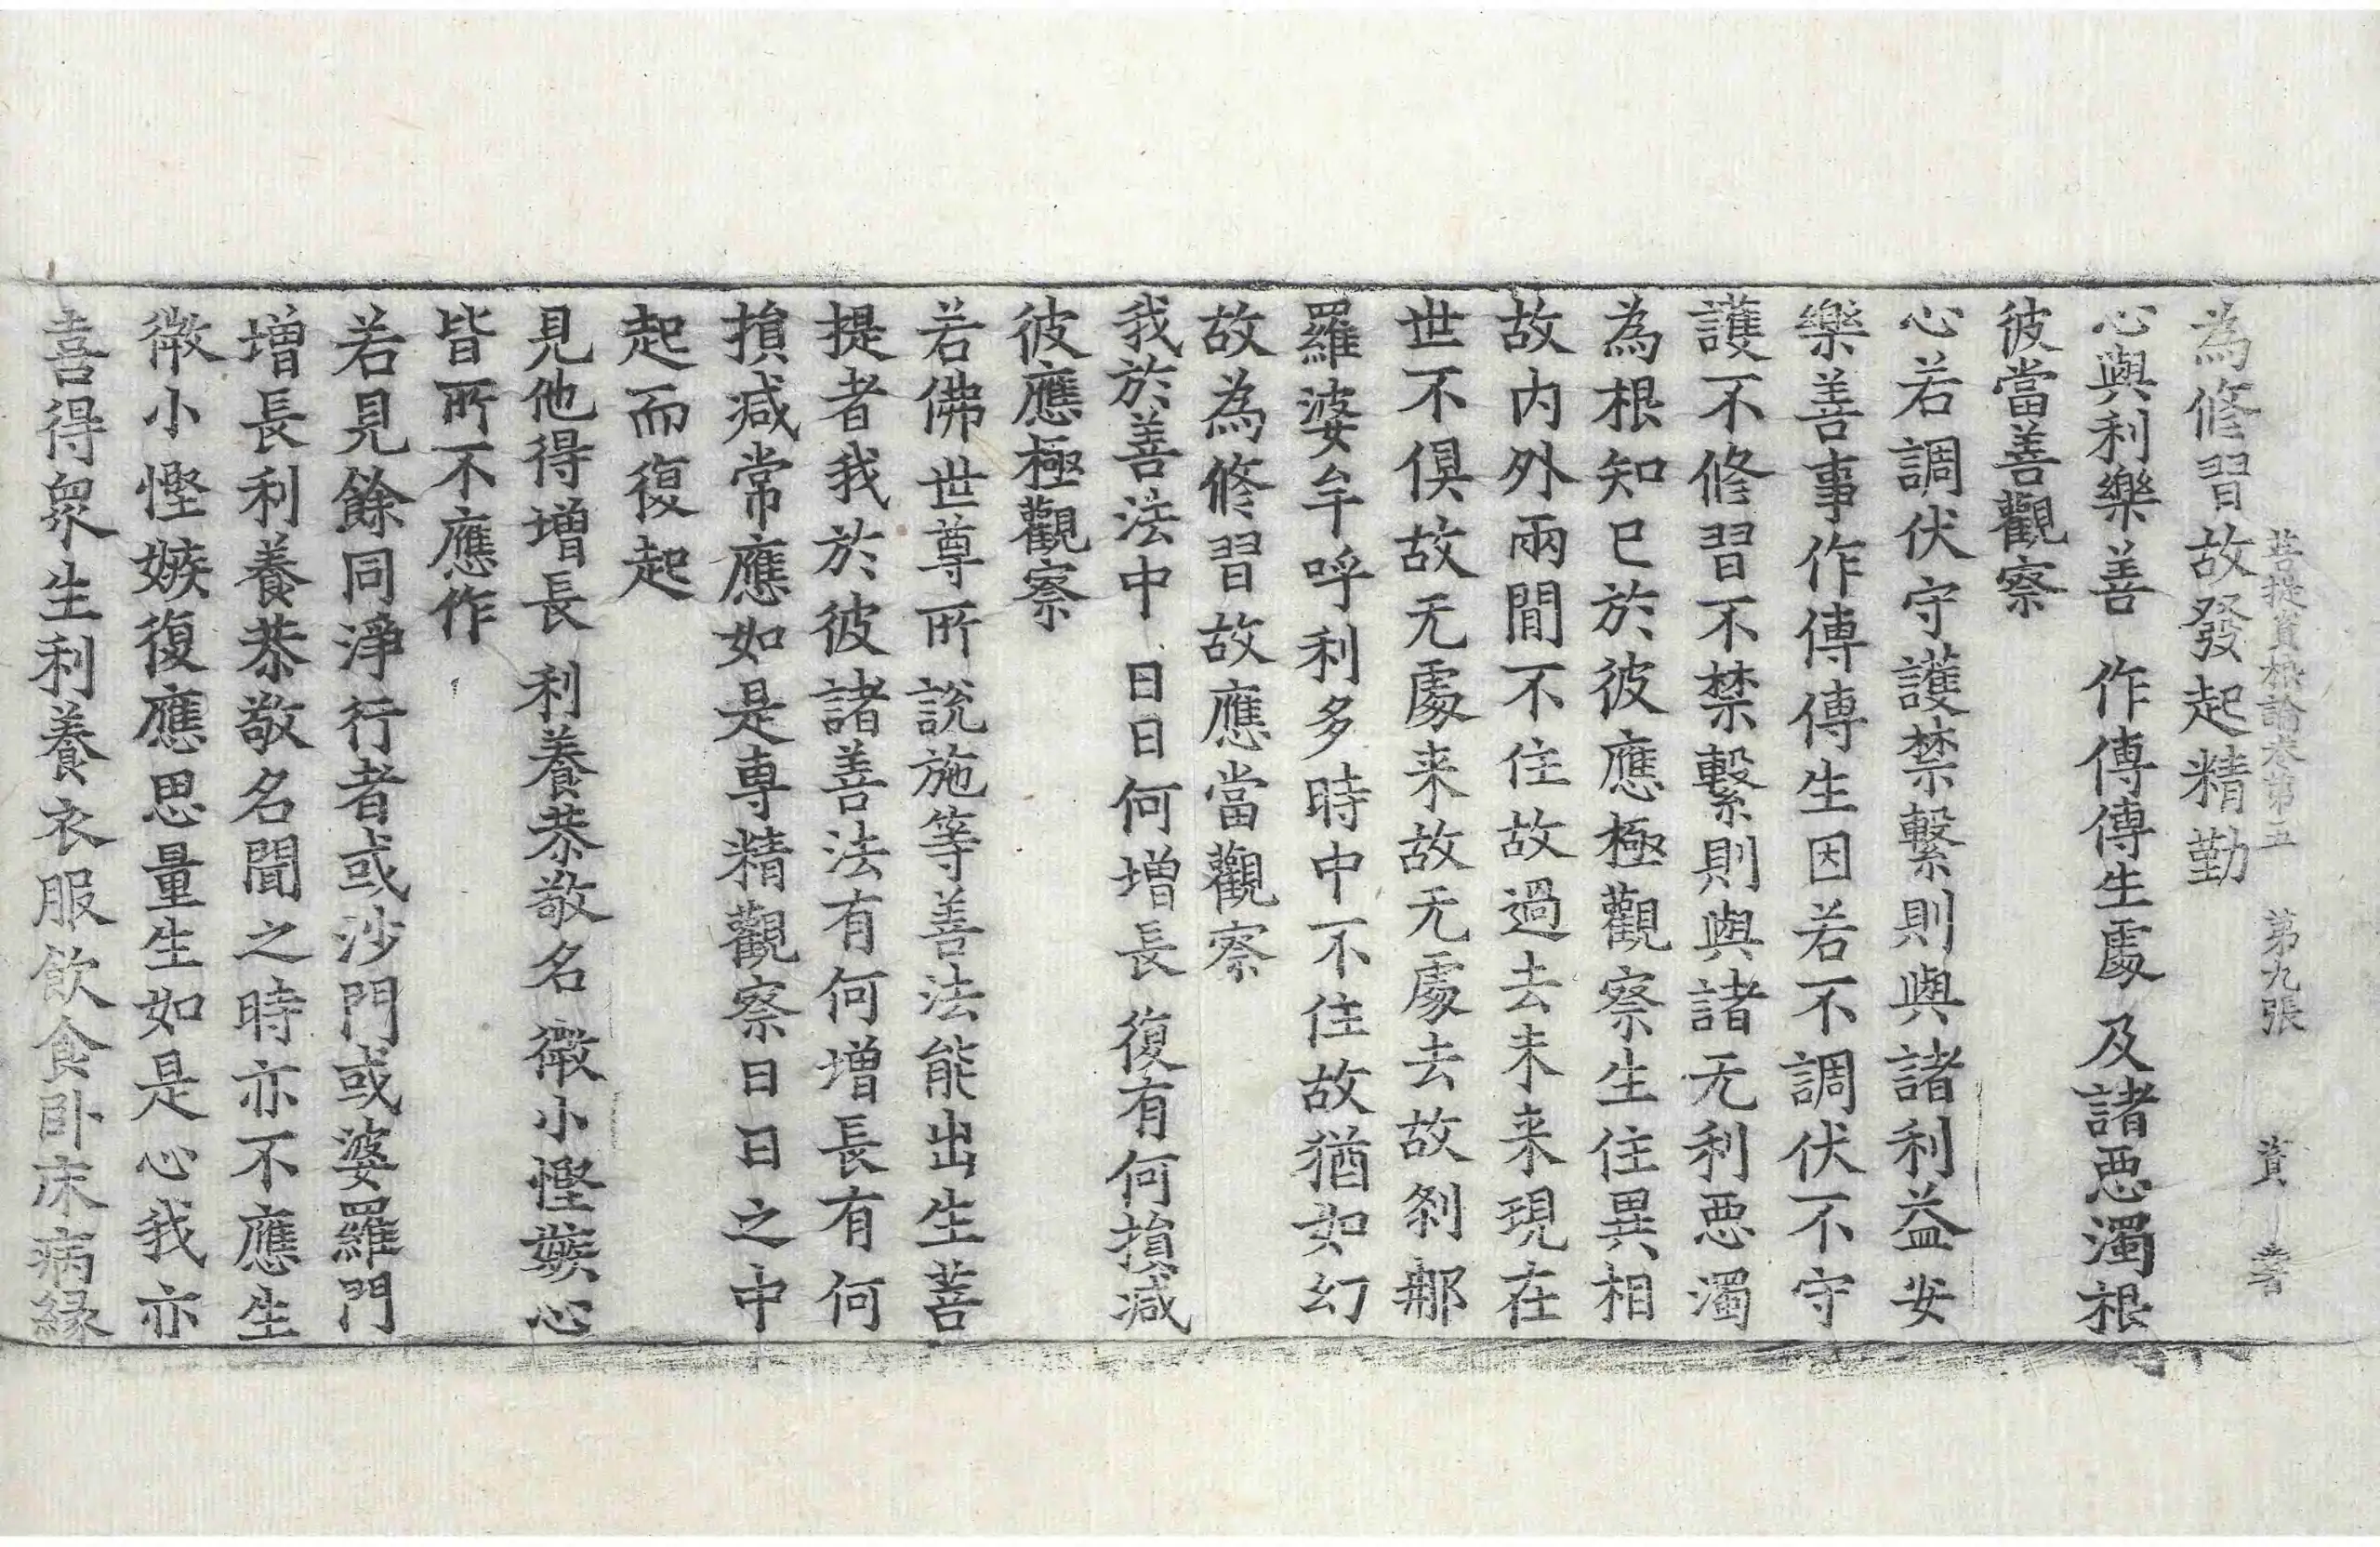 菩提資粮論卷第五　第九張　資
為修習故發起精勤
心與利樂善　作傳傳生處　及諸惡濁根
彼當善觀察
心若調伏守護禁繫則與諸利益安
樂善事作傳傳生因若不調伏不守
護不修習不禁繫則與諸无利惡濁
為根知已於彼應極觀察生住異相
故内外兩閒不住故過去未来現在
世不俱故无處来故无處去故剎那
羅婆牟呼利多時中不住故猶如幻
故為修習故應當觀察
我於善法中　日日何增長　復有何損減
彼應極觀察
若佛世尊所說施等善法能出生菩
提者我於彼諸善法有何增長有何
損減常應如是専精觀察日日之中
起而復起
見他得增長　利養恭敬名　微小慳嫉心
皆所不應作
若見餘同淨行者或沙門或婆羅門
增長利養恭敬名聞之時亦不應生
微小慳嫉復應思量生如是心我亦
喜得衆生利養衣服飲食卧床病緣